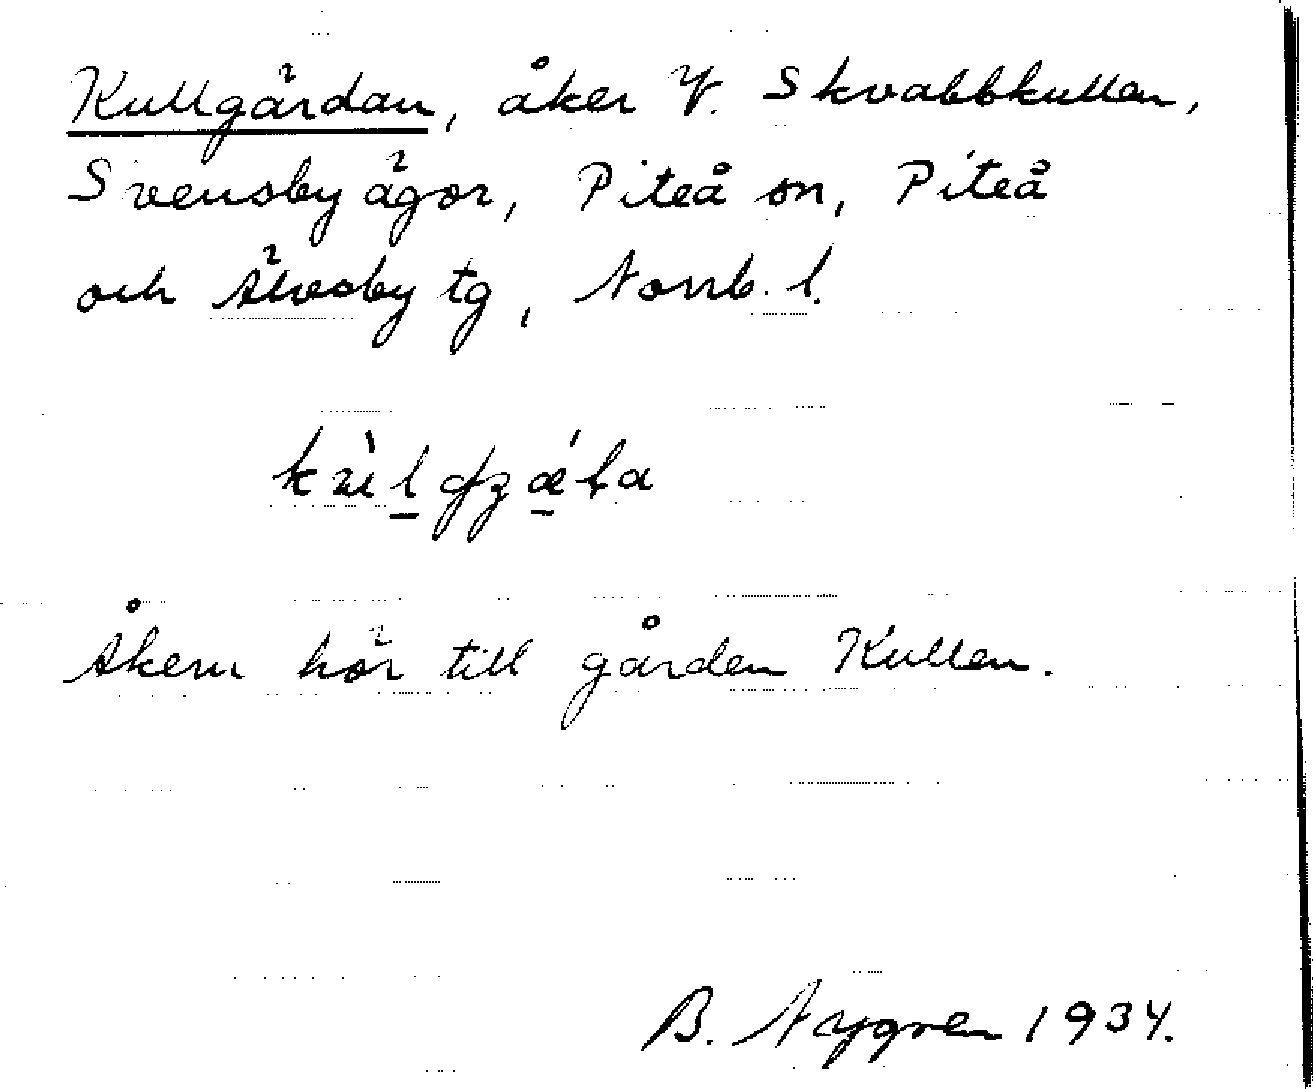 Kullgärdan, åker V. Skvabbkullen,
Svensby ägor, Piteå sn, Piteå
och Älvsby tg, Norrb. l.
Åkern hör till gården Kullen.
B. Nygren 1934.